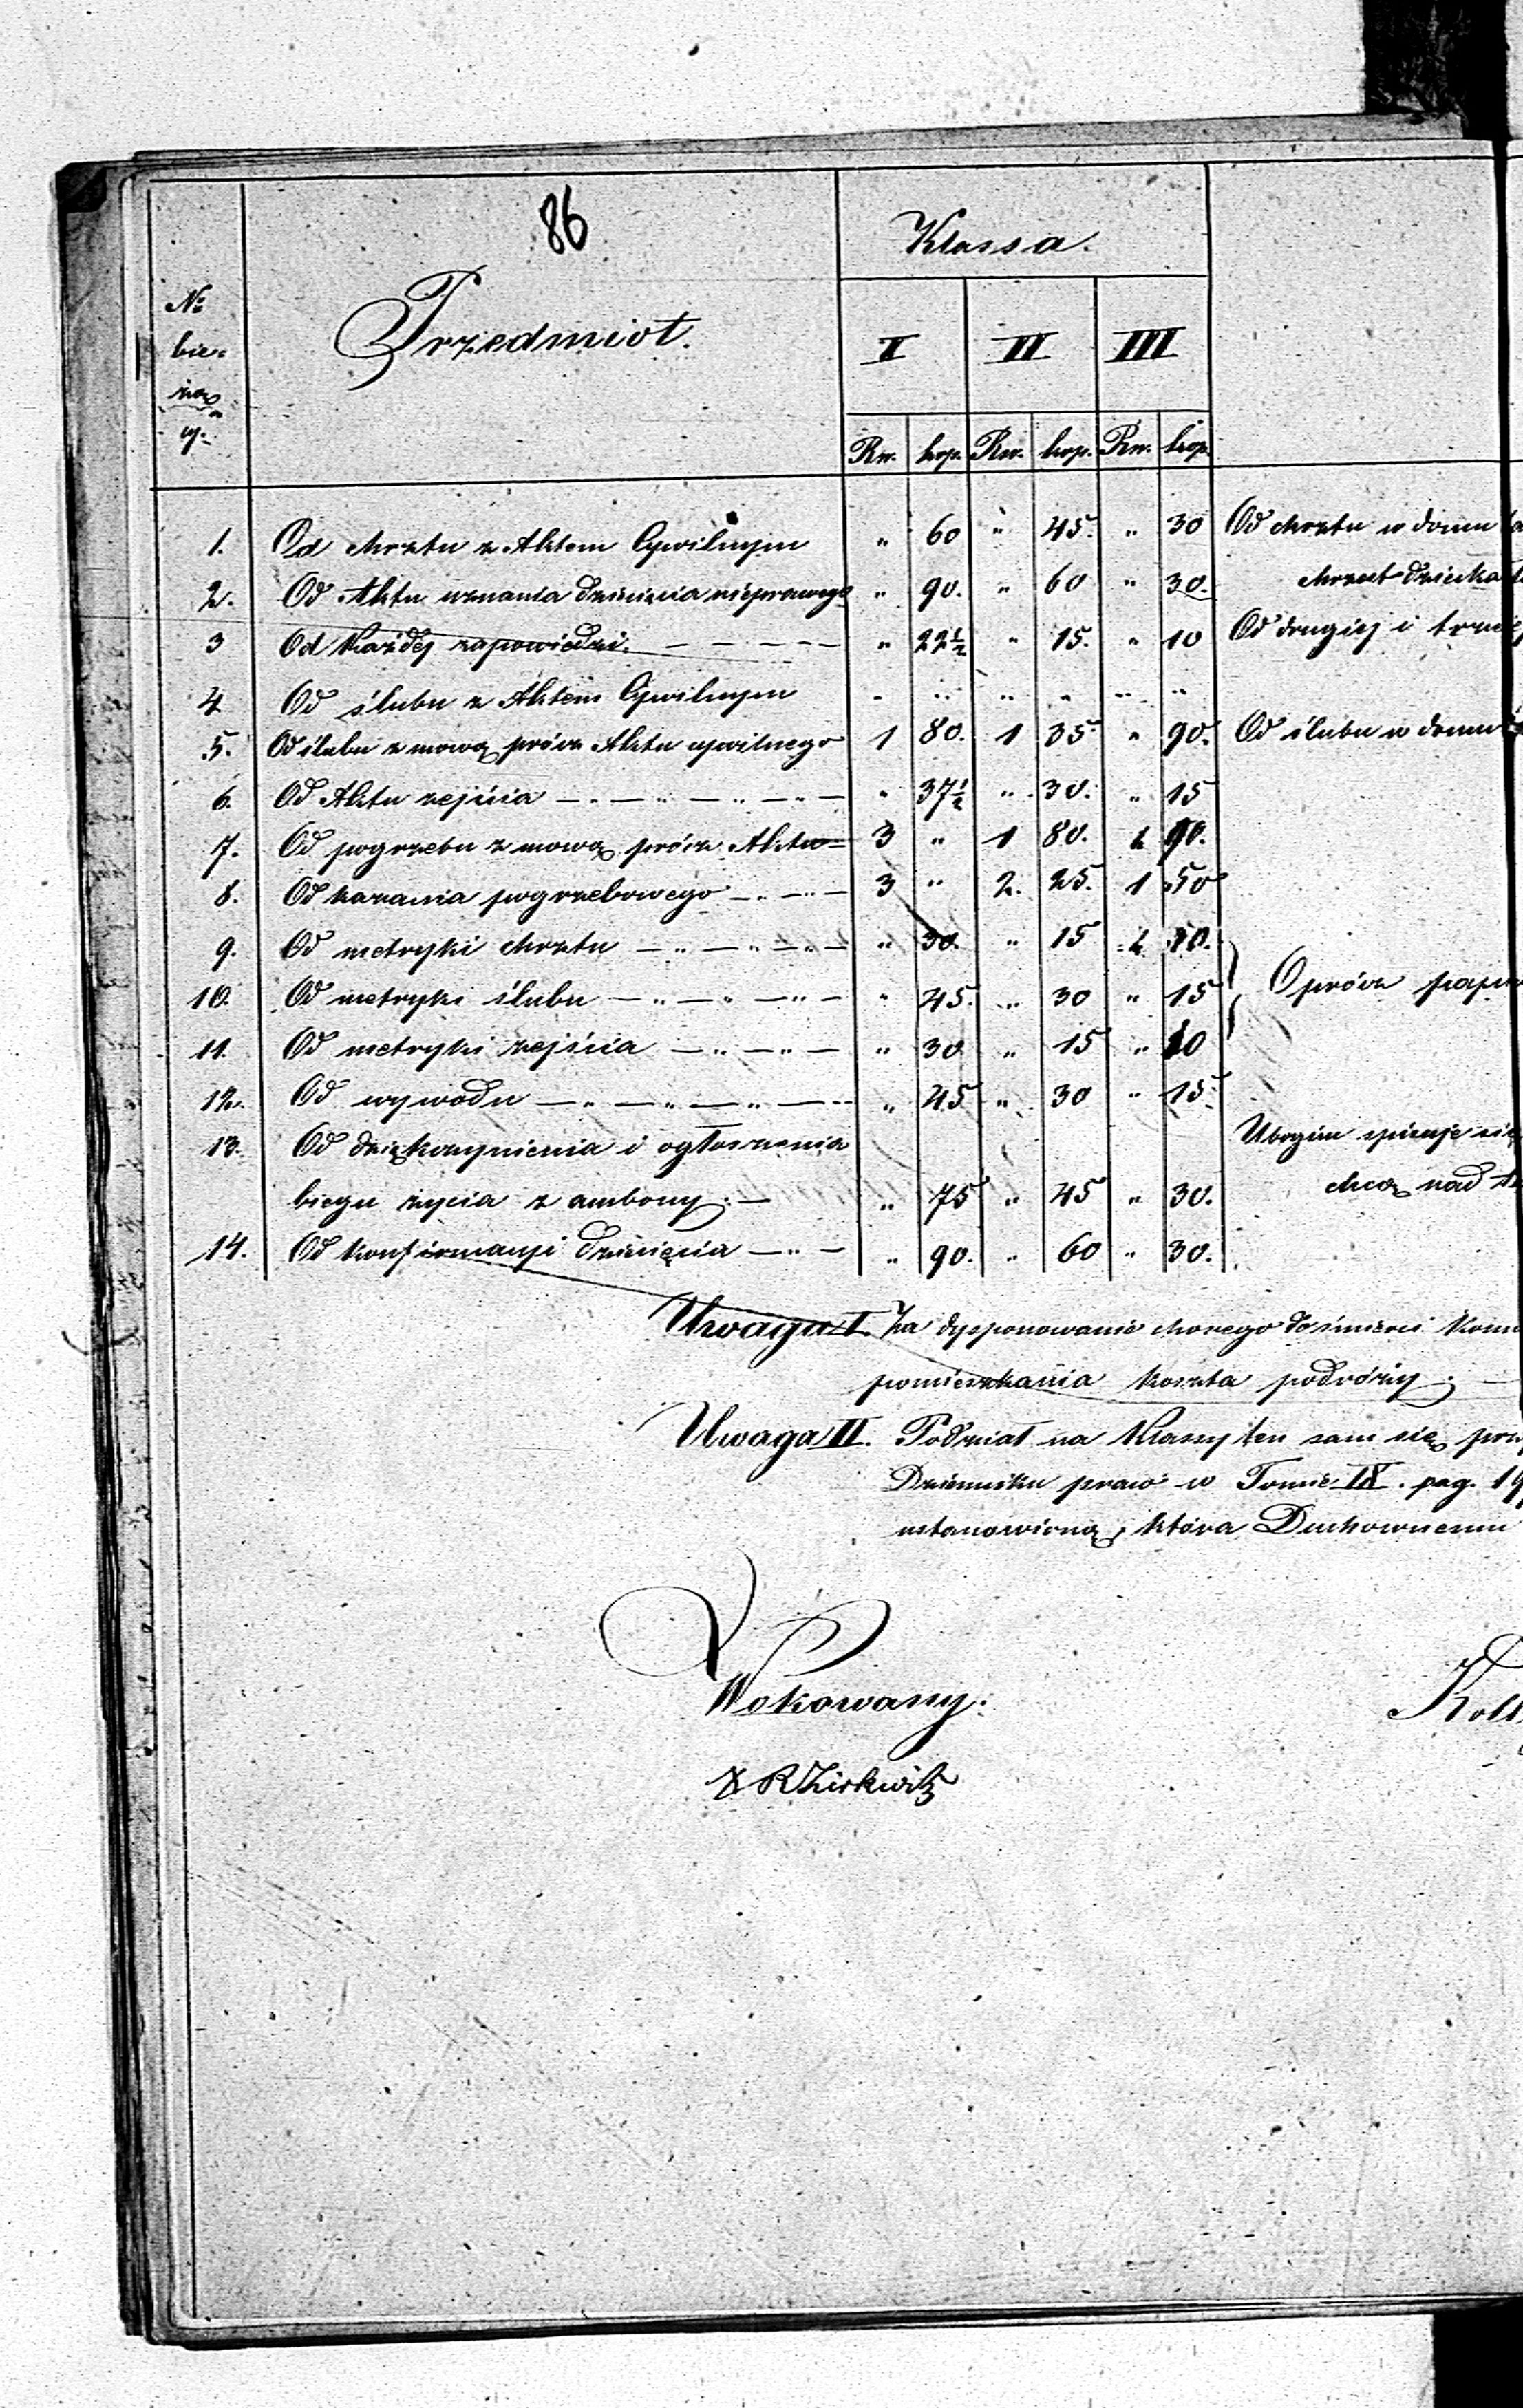 86
Klassa.
№
bie=
żą
cy.
Przedmiot.
I II III
Rsr. kop. Rsr. kop. Rsr. kop.
1. Od chrztu z Aktem Cywilnym " 60 " 45. " 30 Od chrztu w domu
2. Od Aktu uznania dziecięcia nieprawego " 90. " 60 " 30. chrzest dziecka
3 Od każdej zapowiedzi. — — — — " 22½ " 15. " 10 Od drugiej i
4 Od ślubu z Aktem Cywilnym " " " " " "
5. Od ślubu z mową prócz Aktu cywilnego 1 80. 1 35. " 90. Od ślubu w domu
6. Od Aktu zejścia — " — " — " — " — " 37½ " 30. " 15
7. Od pogrzebu z mową prócz Aktu= 3 " 1 80. 90.
8. Od kazania pogrzebowego — " — " — 3 " 2. 25. 1 50
9. Od metryki chrztu — " — " — " — " 30. " 15 10.
10. Od metryki ślubu — " — " — " — " 45. " 30 " 15 Oprócz
11. Od metryki zejścia — " — " — " 30 " 15 " 10
12. Od wywodu — " — " — " — " " 45 " 30 " 15.
13. Od dziękczynienia i ogłoszenia Ubogim
biegu życia z ambony. — " 75 " 45 " 30. chcą nad
14. Od konfirmacyi dziecięcia — " — " 90. " 60 " 30.
Uwaga I. Za dysponowanie chorego do śmierci
pomieszkania koszta podróży. —
Uwaga II. Podział na Klassy ten sam się
Dzienniku praw w Tomie IX. pag. 19
ustanowioną, która Duchownemu
Wokowany:
X R Zirkwitz